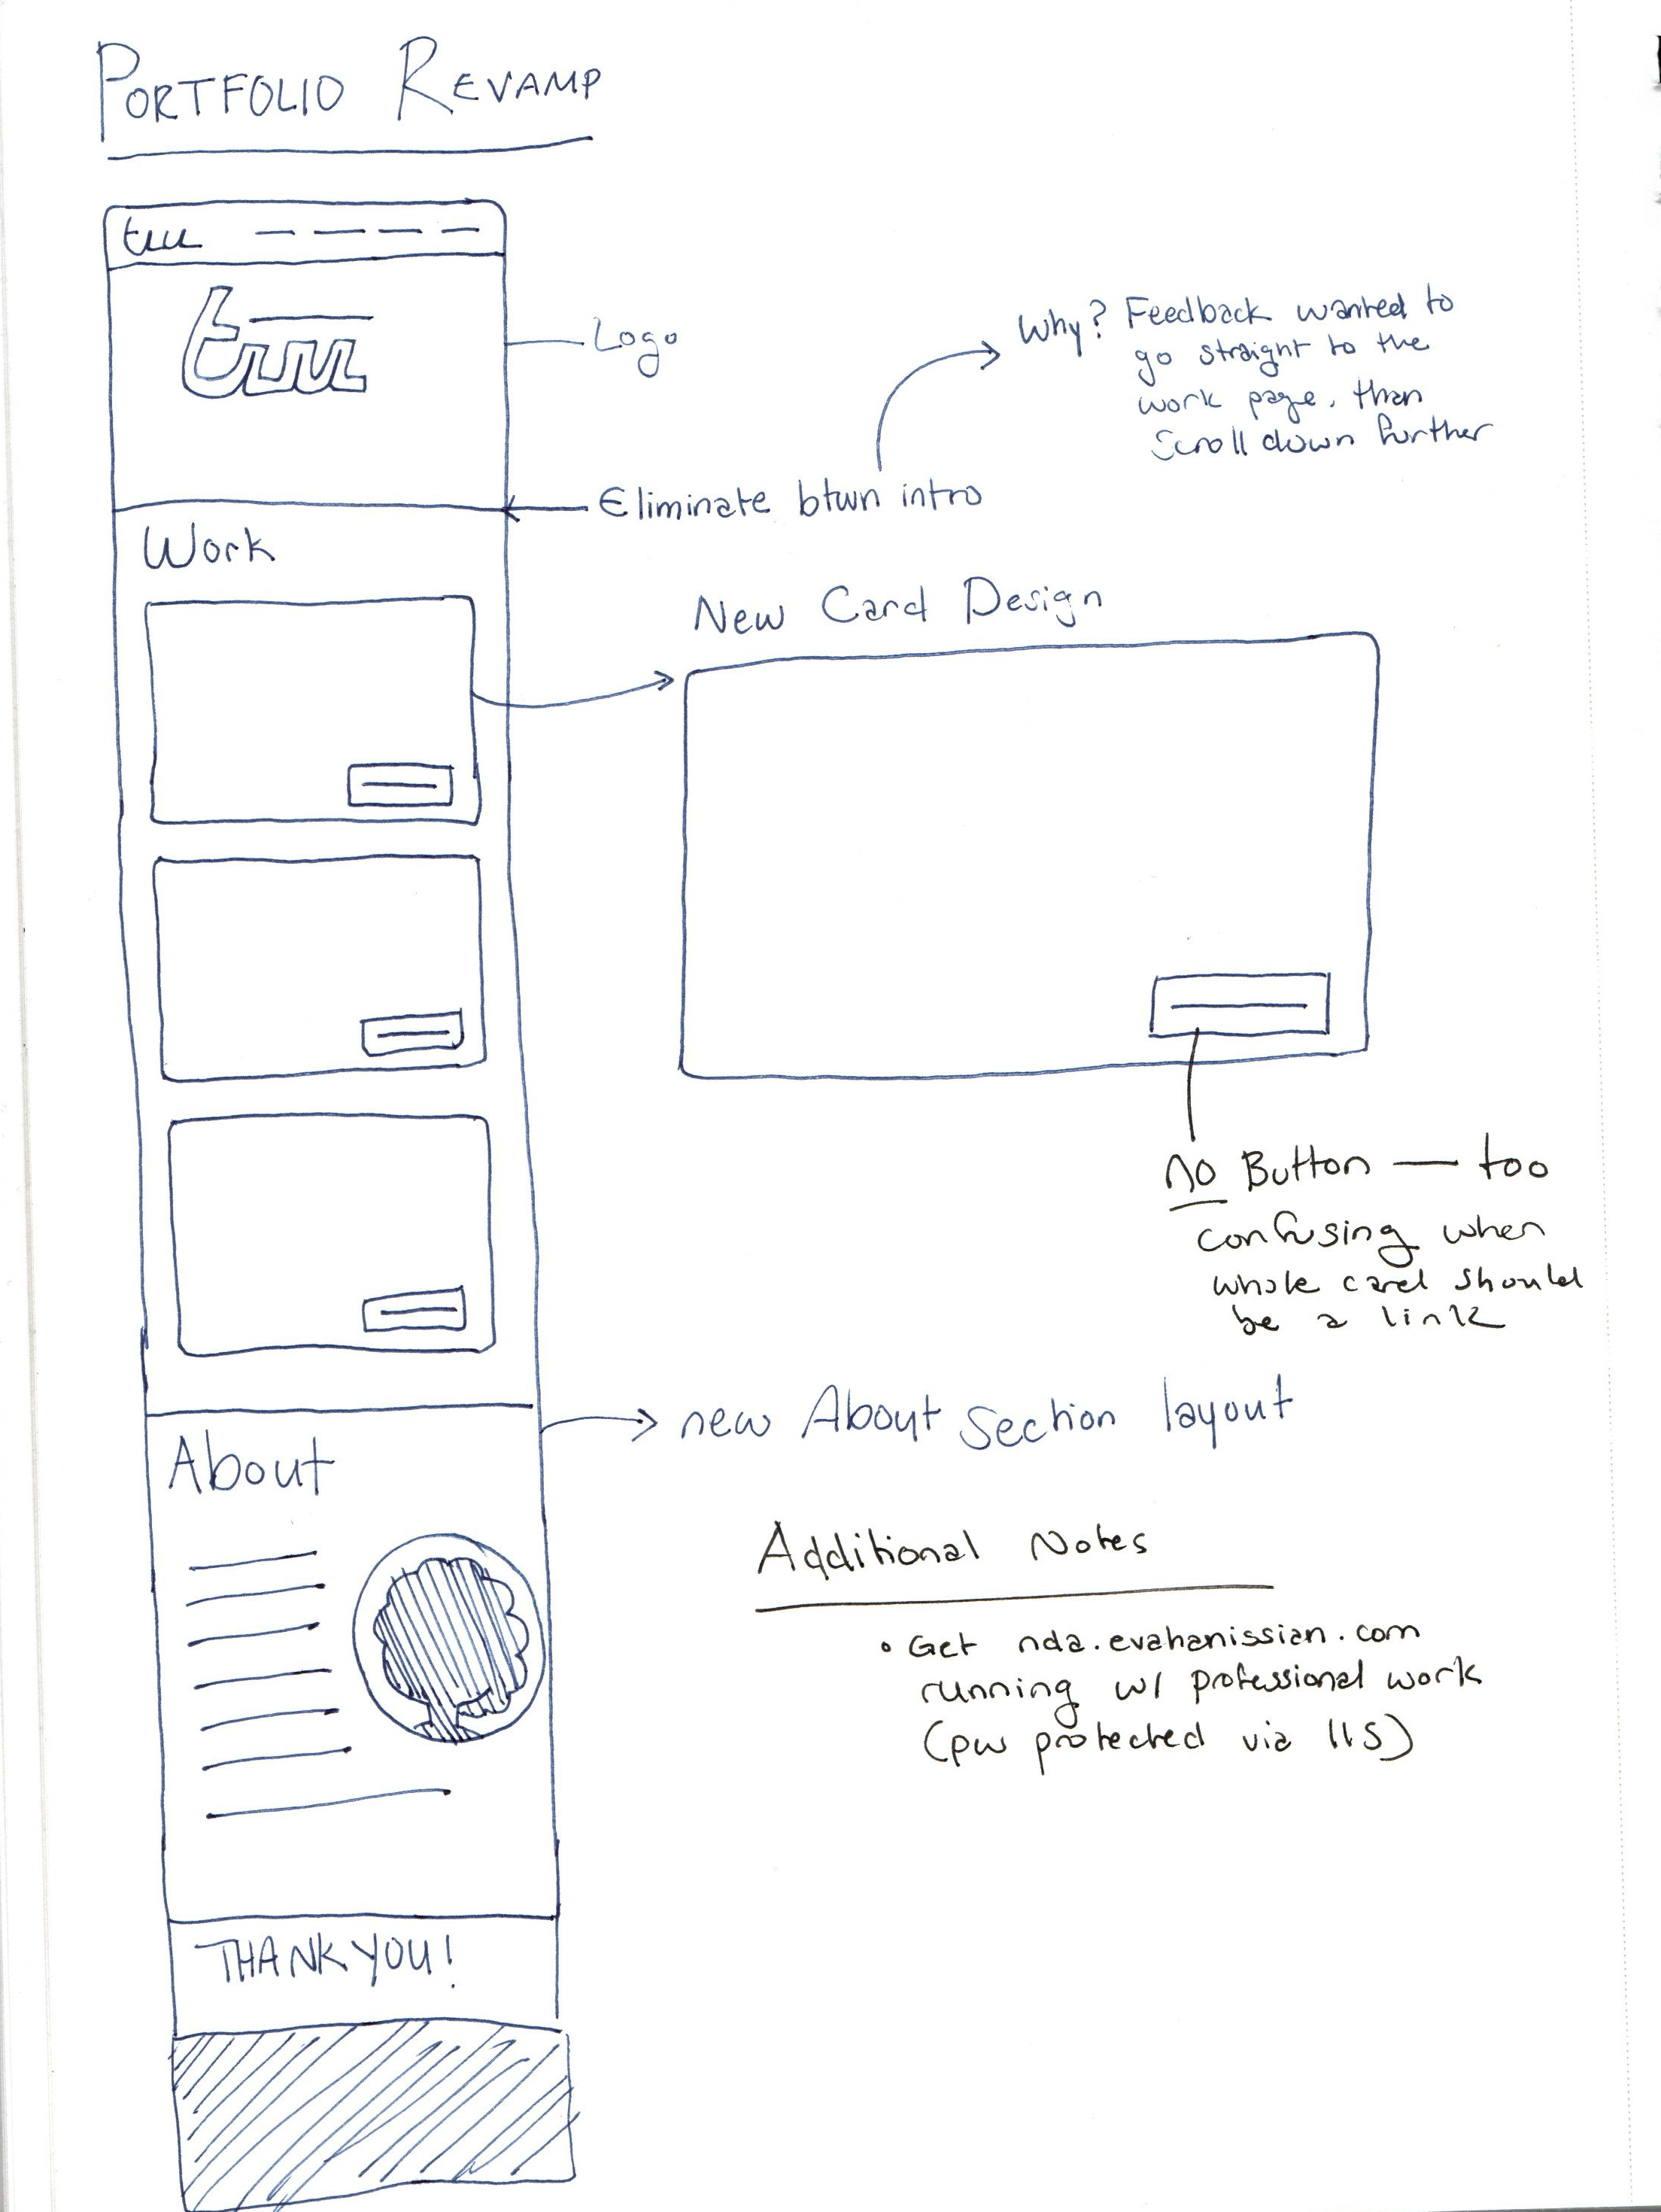 PORTFOLIO REVAMP
Logo
Why? Feedback wanted to
go straight to the
work page, than
Scroll down further
Eliminate btwn intro
Work
New Card Design
no Button — too
confusing when
whole card should
be a link
new About section layout
About
Additional Notes
• Get nda.evahanissian.com
running w/ professional work
(pw protected via IIS)
THANK YOU!